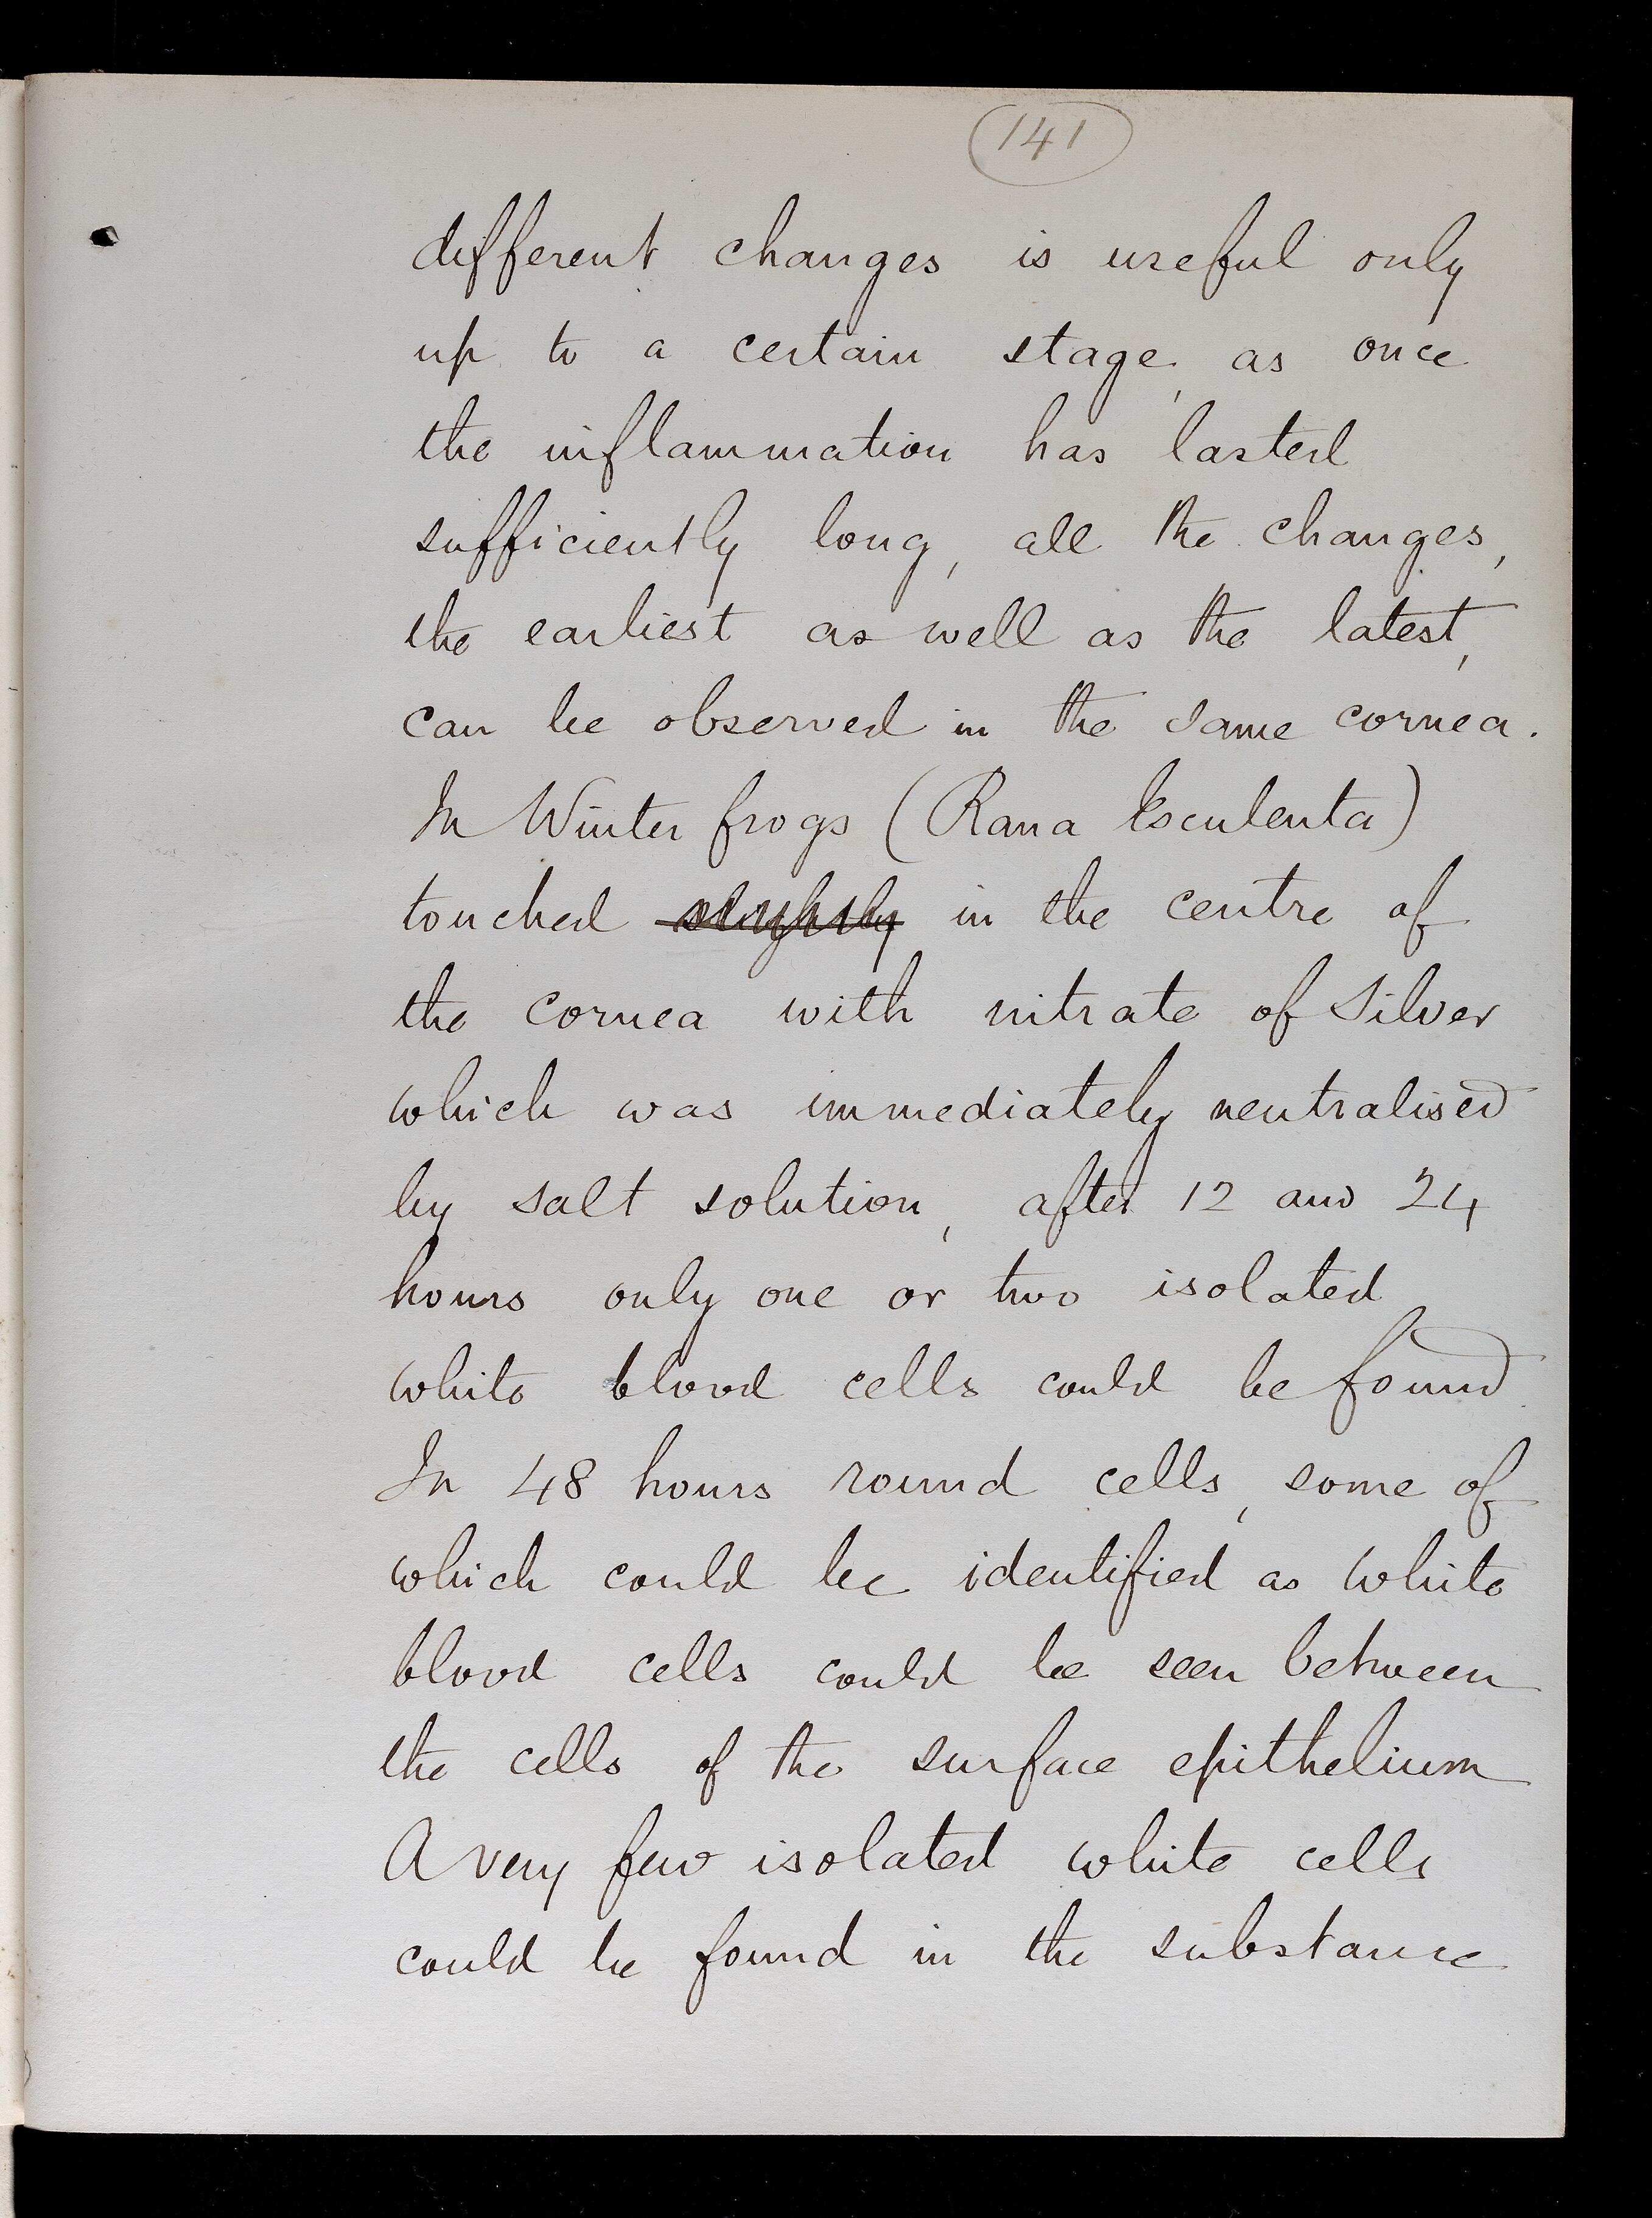 141
different changes is useful only
up to a certain stage, as once
the inflammation has lasted
sufficiently long, all the changes,
the earliest as well as the latest,
can be observed in the same cornea.
In Winter frogs (Rana Esculenta)
touched in the centre of
the cornea with nitrate of Silver
which was immediately neutralised
by salt solution, after 12 and 24
hours only one or two isolated
white blood cells could be found.
In 48 hours round cells, some of
which could be identified as white
blood cells could be seen between
the cells of the surface epithelium
A very few isolated white cells
could be found in the substance